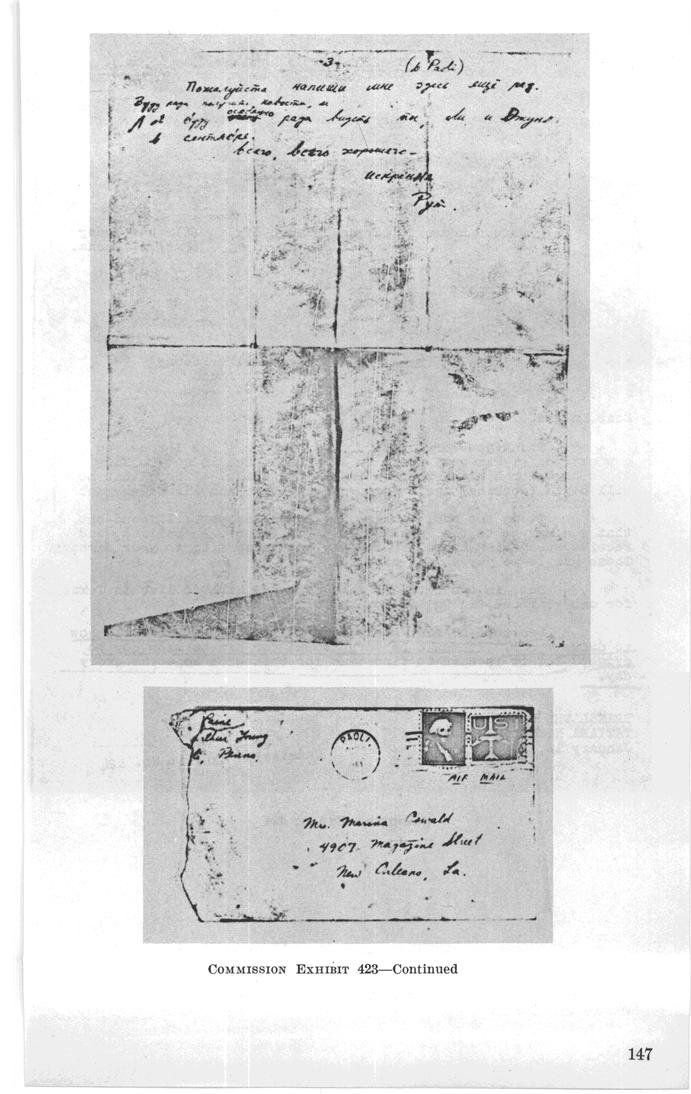 -3-
(в Paoli)
Пожалуйста напиши мне здесь ещё раз.
Буду рада получ. новости, и
особенно
буду рада видеть ты, Ли и Джуня.
в сентябре.
Всего, всего хорошего-
искренне
Рут.
Paine
Arthur Young
PAOLI
US
AIR MAIL
Mrs. Marina Oswald
4907 Magazine Street
New Orleans, La.
COMMISSION EXHIBIT 423—Continued
147